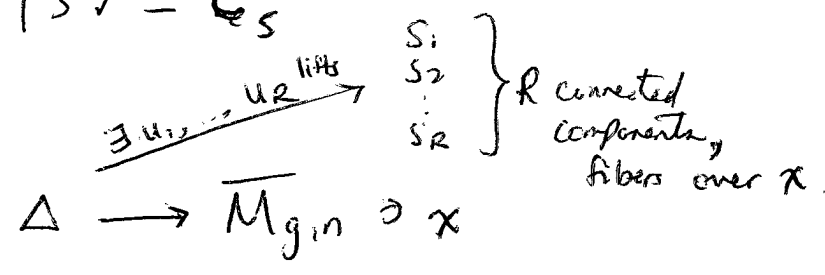 S₁
∃ u₁, ..., u_R lifts S₂ } R connected
⋮ components,
S_R fibers over x.
Δ ⟶ \overline{M}_{g,n} ∋ x